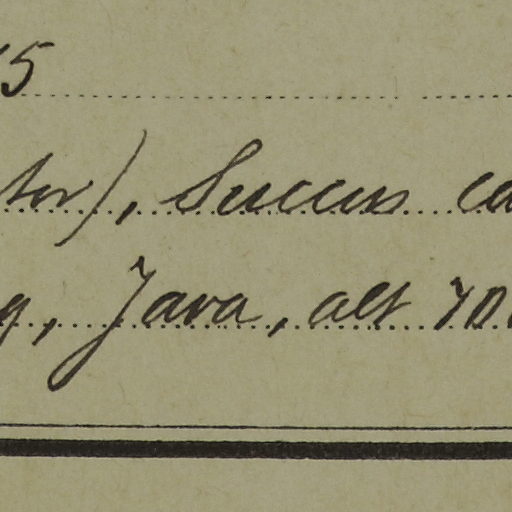 5
tor), Succus ca
g, Java, alt 70